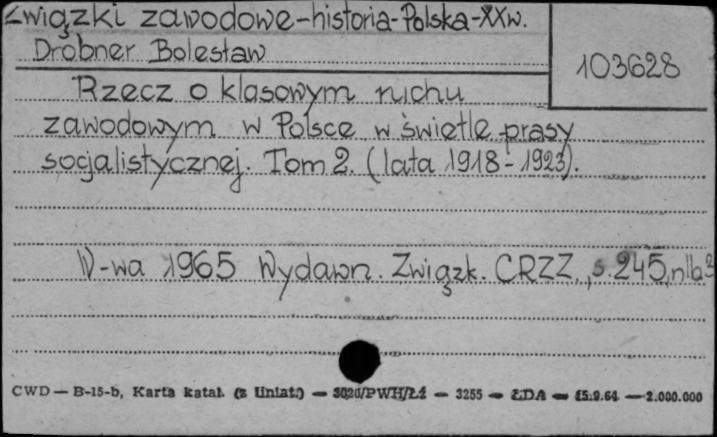 Związki zawodowe-historia-Polska-XXw.
Drobner Bolesław
103628
Rzecz o klasowym ruchu
zawodowym w Polsce w świetle prasy
socjalistycznej. Tom 2. (lata 1918-1923).
W-wa 1965 Wydawn. Związk. CRZZ, s. 245, nlb. 3
CWD — B-15-b, Karta katal. (z liniat.) — 3020/PWH/Łż — 3255 — ŁDA — 15.9.64 — 2.000.000